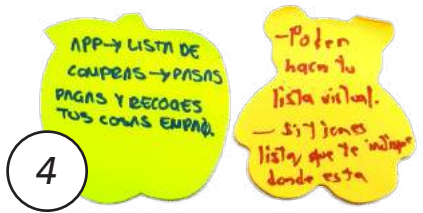 APP→ LISTA DE
COMPRAS → PASAS
PAGAS Y RECOGES
TUS COSAS EMPAQ.
-Poder
hacer tu
lista virtual.
- si tienes
lista que te indique
donde esta
4